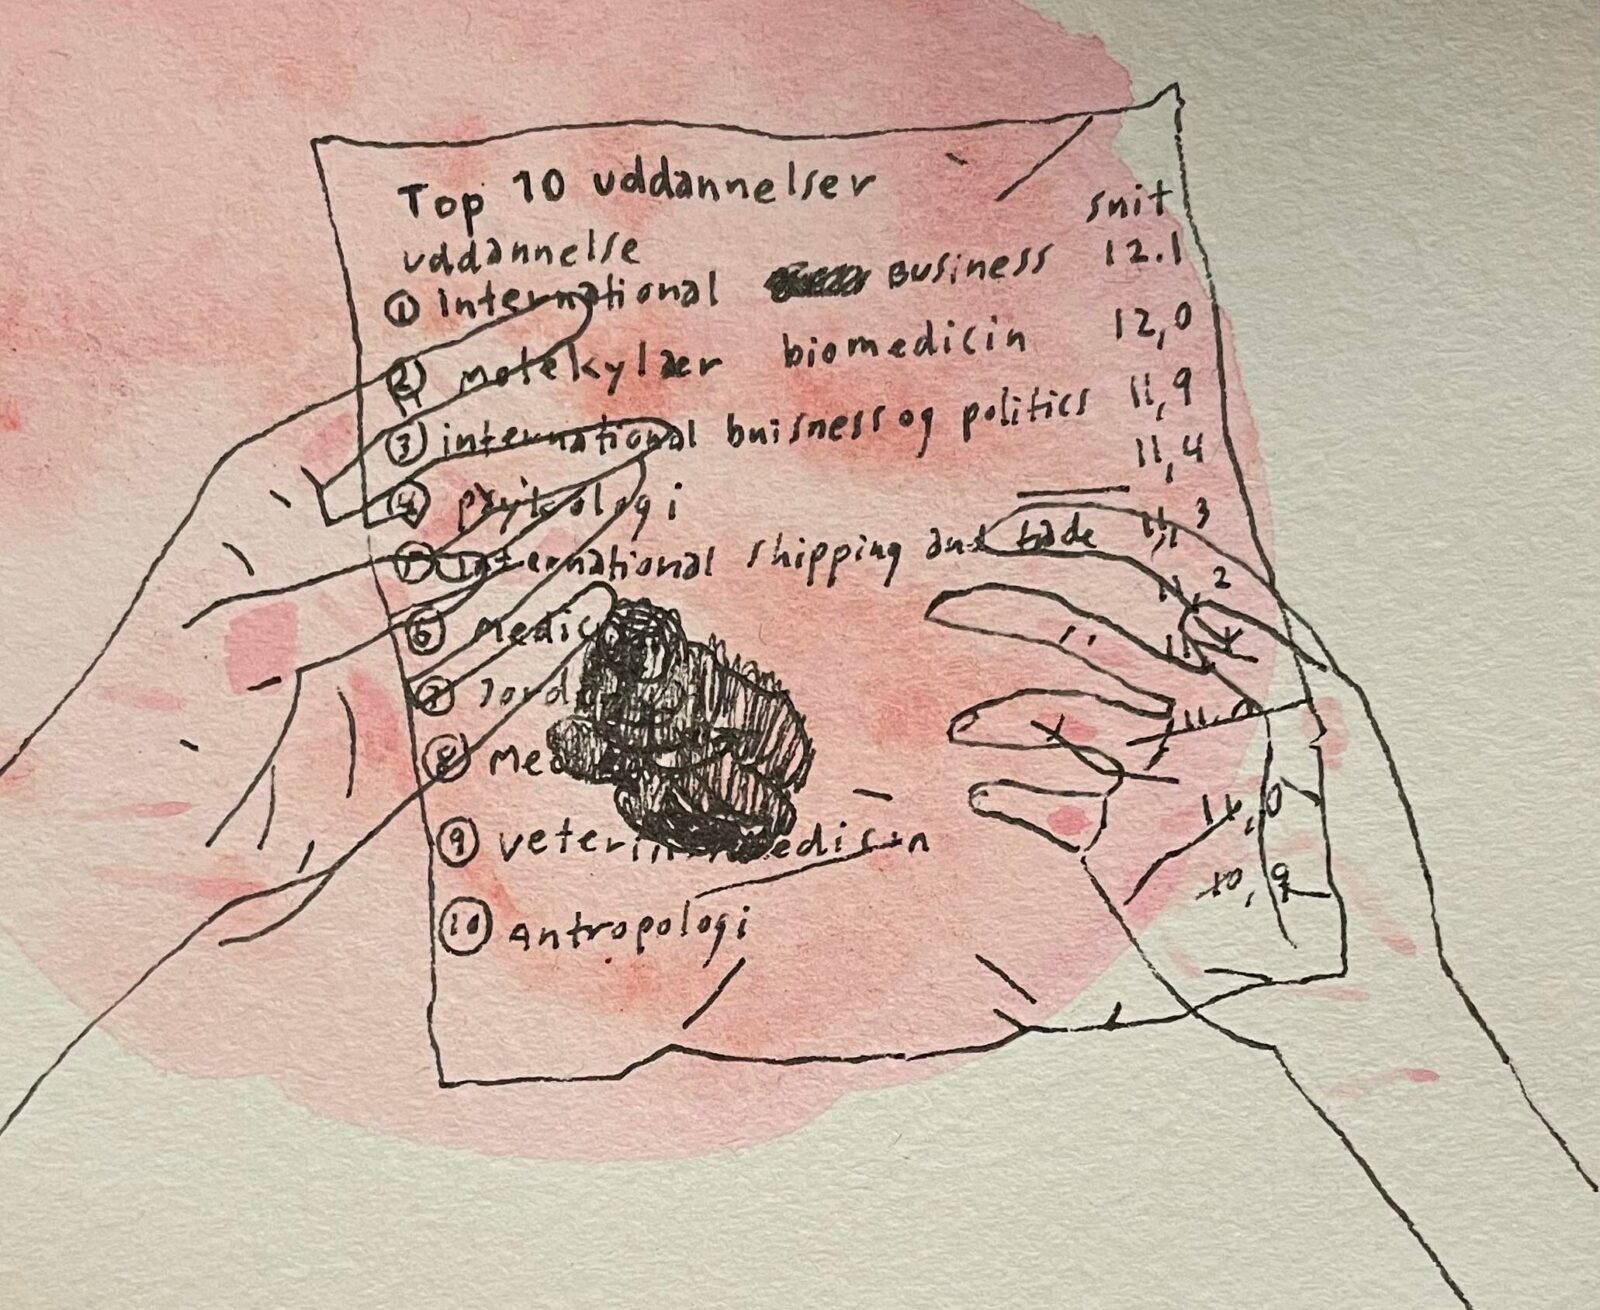 Top 10 uddannelser
uddannelse snit
① international Business 12.1
② molekylær biomedicin 12,0
③ international buisness og politics 11,9
④ psykologi 11,4
international shipping and trade 11,3
⑥ Medic 11,2
⑦ Jord 11,
⑧ Med 11,
⑨ veterin edicin 11,0
⑩ Antropologi 10,9